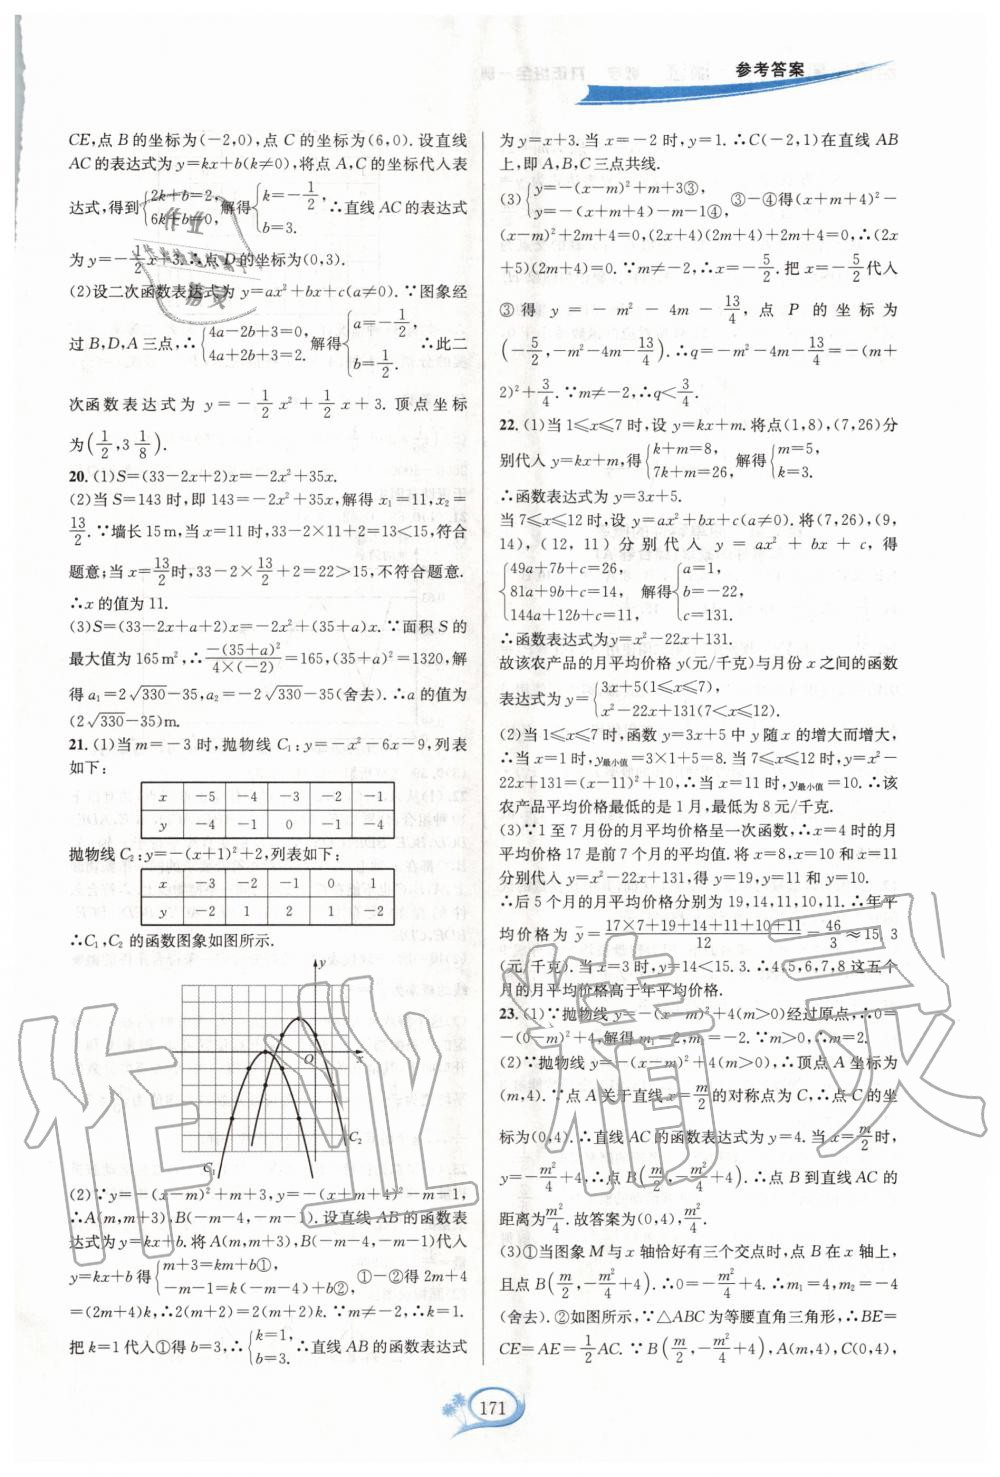 参考答案
CE,点 B 的坐标为(-2,0),点 C 的坐标为(6,0). 设直线
AC 的表达式为 y=kx+b(k≠0),将点 A,C 的坐标代入表
达式,得到{2k+b=2, 6k+b=0, 解得{k=-1/2, b=3. ∴直线 AC 的表达式
为 y=-1/2x+3. ∴点 D 的坐标为(0,3).
(2)设二次函数表达式为 y=ax²+bx+c(a≠0). ∵图象经
过 B,D,A 三点,∴{4a-2b+3=0, 4a+2b+3=2. 解得{a=-1/2, b=1/2. ∴此二
次函数表达式为 y=-1/2x²+1/2x+3. 顶点坐标
为(1/2,3 1/8).
20. (1)S=(33-2x+2)x=-2x²+35x.
(2)当 S=143 时,即 143=-2x²+35x,解得 x₁=11,x₂=
13/2. ∵墙长 15 m,当 x=11 时,33-2×11+2=13<15,符合
题意;当 x=13/2时,33-2×13/2+2=22>15,不符合题意.
∴x 的值为 11.
(3)S=(33-2x+a+2)x=-2x²+(35+a)x. ∵面积 S 的
最大值为 165 m²,∴-(35+a)²/4×(-2)=165,(35+a)²=1320,解
得 a₁=2√330-35,a₂=-2√330-35(舍去). ∴a 的值为
(2√330-35)m.
21. (1)当 m=-3 时,抛物线 C₁:y=-x²-6x-9,列表
如下:
x -5 -4 -3 -2 -1
y -4 -1 0 -1 -4
抛物线 C₂:y=-(x+1)²+2,列表如下:
x -3 -2 -1 0 1
y -2 1 2 1 -2
∴C₁,C₂ 的函数图象如图所示.
y
O
x
C₂
C₁
(2)∵y=-(x-m)²+m+3,y=-(x+m+4)²-m-1,
∴A(m,m+3),B(-m-4,-m-1). 设直线 AB 的函数表
达式为 y=kx+b. 将 A(m,m+3),B(-m-4,-m-1)代入
y=kx+b 得{m+3=km+b①, -m-1=k(-m-4)+b②, ①-②得 2m+4
=(2m+4)k,∴2(m+2)=2(m+2)k. ∵m≠-2,∴k=1.
把 k=1 代入①得 b=3,∴{k=1, b=3. ∴直线 AB 的函数表达式
为 y=x+3. 当 x=-2 时,y=1. ∴C(-2,1)在直线 AB
上,即 A,B,C 三点共线.
(3){y=-(x-m)²+m+3③, y=-(x+m+4)-m-1④, ③-④得(x+m+4)²-
(x-m)²+2m+4=0,(2x+4)(2m+4)+2m+4=0,∴(2x
+5)(2m+4)=0. ∵m≠-2,∴x=-5/2. 把 x=-5/2代入
③得 y=-m²-4m-13/4,点 P 的坐标为
(-5/2,-m²-4m-13/4). ∴q=-m²-4m-13/4=-(m+
2)²+3/4. ∵m≠-2,∴q<3/4.
22. (1)当 1≤x≤7 时,设 y=kx+m. 将点(1,8),(7,26)分
别代入 y=kx+m,得{k+m=8, 7k+m=26, 解得{m=5, k=3.
∴函数表达式为 y=3x+5.
当 7≤x≤12 时,设 y=ax²+bx+c(a≠0). 将(7,26),(9,
14),(12,11)分别代入 y=ax²+bx+c,得
{49a+7b+c=26, 81a+9b+c=14, 144a+12b+c=11, 解得{a=1, b=-22, c=131.
∴函数表达式为 y=x²-22x+131.
故该农产品的月平均价格 y(元/千克)与月份 x 之间的函数
表达式为 y={3x+5(1≤x≤7), x²-22x+131(7<x≤12).
(2)当 1≤x≤7 时,函数 y=3x+5 中 y 随 x 的增大而增大,
∴当 x=1 时,y最小值=3×1+5=8. 当 7≤x≤12 时,y=x²-
22x+131=(x-11)²+10,∴当 x=11 时,y最小值=10. ∴该
农产品平均价格最低的是 1 月,最低为 8 元/千克.
(3)∵1 至 7 月份的月平均价格呈一次函数,∴x=4 时的月
平均价格 17 是前 7 个月的平均值. 将 x=8,x=10 和 x=11
分别代入 y=x²-22x+131,得 y=19,y=11 和 y=10.
∴后 5 个月的月平均价格分别为 19,14,11,10,11. ∴年平
均价格为 y=17×7+19+14+11+10+11/12=46/3≈15.3
(元/千克). 当 x=3 时,y=14<15.3. ∴4,5,6,7,8 这五个
月的月平均价格高于年平均价格.
23. (1)∵抛物线 y=-(x-m)²+4(m>0)经过原点,∴0=
-(0-m)²+4,解得 m₁=2,m₂=-2. ∵m>0,∴m=2.
(2)∵抛物线 y=-(x-m)²+4(m>0),∴顶点 A 坐标为
(m,4). ∵点 A 关于直线 x=m/2的对称点为 C,∴点 C 的坐
标为(0,4). ∴直线 AC 的函数表达式为 y=4. 当 x=m/2时,
y=-m²/4+4,∴点 B(m/2,-m²/4+4). ∴点 B 到直线 AC 的
距离为m²/4. 故答案为(0,4),m²/4.
(3)①当图象 M 与 x 轴恰好有三个交点时,点 B 在 x 轴上,
且点 B(m/2,-m²/4+4). ∴0=-m²/4+4. ∴m₁=4,m₂=-4
(舍去). ②如图所示,∵△ABC 为等腰直角三角形,∴BE=
CE=AE=1/2AC. ∵B(m/2,-m²/4+4),A(m,4),C(0,4),
171
作业精灵